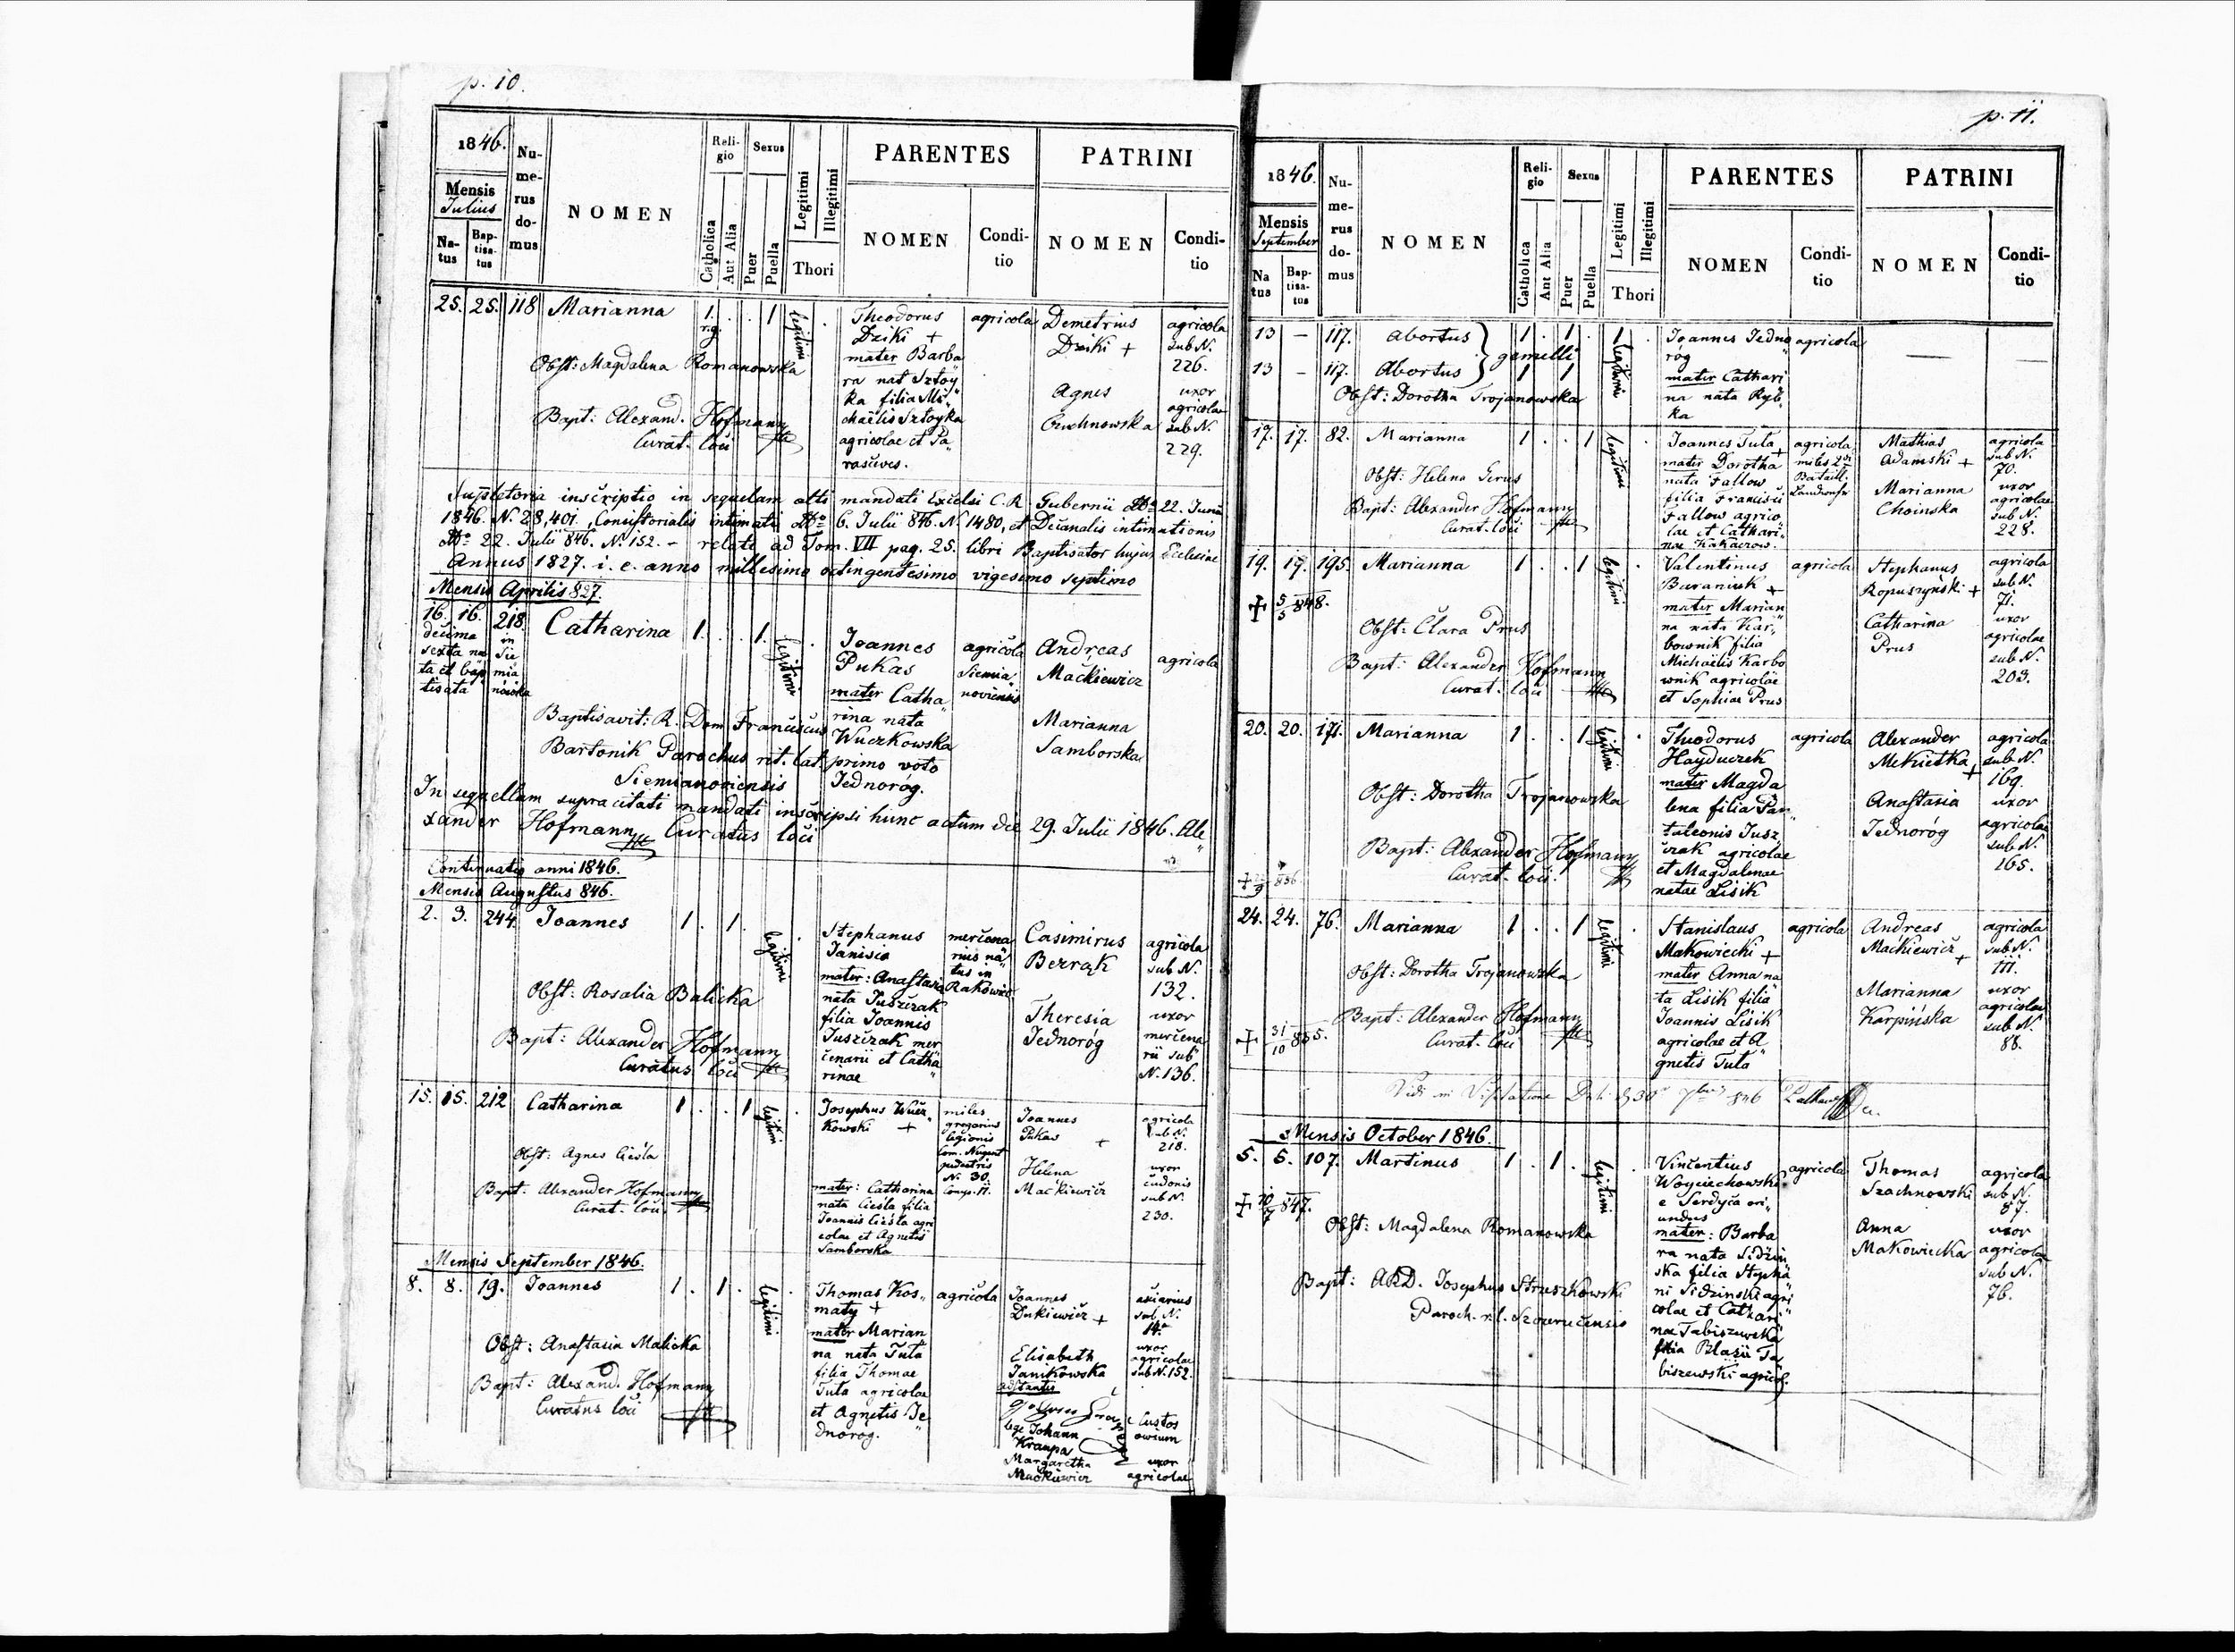 p. 10.
1846.
Mensis
Julius
Na-
tus
Bap-
tisa-
tus
Nu-
me-
rus
do-
mus
NOMEN
Reli-
gio
Catholica
Aut Alia
Sexus
Puer
Puella
Legitimi
Illegitimi
Thori
PARENTES
NOMEN
Condi-
tio
PATRINI
NOMEN
Condi-
tio
25. 25. 118 Marianna 1. . . 1 legitimi .
r.g.
Obst: Magdalena Romanowska
Bapt: Alexand. Hofmann
Curat. loci
Theodorus
Dziki +
mater Barba
ra nat Sztoy
ka filia Mi
chaëlis Sztoyka
agricolae et Pa
rascives.
agricola
Demetrius
Dziki +
Agnes
Cuchnowska
agricola
sub N.
226.
uxor
agricolae
sub N.
229.
Supletoria inscriptio in sequelam alti mandati Excelsi C. R. Gubernii ddo 22. Junii
1846. N. 28,401. Consistorialis intimati ddo 6. Julii 846. N. 1480, et Decanalis intimationis
ddo 22. Julii 846. N. 152. - relate ad Tom. VII pag. 25. libri Baptisator hujus Ecclesiae
Annus 1827. i. e. anno millesimo octingentesimo vigesimo septimo
Mensis Aprilis 827.
16. 16. 218. Catharina 1. . . 1. legitimi .
decima
sexta na
ta et bap
tisata
in
Sie
mia
nowka
Baptisavit: R. Dom Franciscus
Bartonik Parochus rit. lat.
Siemianoviensis
Joannes
Pukas
mater Catha
rina nata
Wuczkowska
primo voto
Jednoróg.
agricola
Siemia
noviensis
Andreas
Maćkiewicz
Marianna
Samborska
agricola
In sequellam supracitati mandati inscripsi hunc actum die 29. Julii 1846. Ale
xander Hofmann Curatus loci
Continuatio anni 1846.
Mensis Augustus 846.
2. 3. 244. Joannes 1. . 1. legitimi .
Obst: Rosalia Balicka
Bapt: Alexander Hofmann
Curatus loci
Stephanus
Janisio
mater: Anastasia
nata Juszczak
filia Joannis
Juszczak mer
cenarii et Catha
rinae
mercena
rius na
tus in
Rakowiec
Casimirus
Bezrąk
Theresia
Jednoróg
agricola
sub N.
132.
uxor
mercena
rii sub
N. 136.
15. 15. 212 Catharina 1. . . 1 legitimi .
Obst: Agnes Cieśla
Bapt: Alexander Hofmann
Curat. loci
Josephus Wucz
kowski +
mater: Catharina
nata Cieśla filia
Joannis Cieśla agri
colae et Agnetis
Samborska
miles
gregarius
legionis
Com. Nugent
pedestris
N. 30.
Comp. 11.
Joannes
Pukas +
Helena
Maćkiewicz
agricola
sub N.
218.
uxor
cudonis
sub N.
230.
Mensis September 1846.
8. 8. 19. Joannes 1. . 1. . legitimi .
Obst: Anastasia Malicka
Bapt: Alexand. Hofmann
Curatus loci
Thomas Kos
maty +
mater Marian
na nata Tuta
filia Thomae
Tuta agricolae
et Agnetis Je
dnorog.
agricola
Joannes
Dukiewicz +
Elisabeth
Janikowska
adstantes
lege Johann
Kraupa
Margaretha
Maćkiewicz
axiarius
sub N.
14.
uxor
agricolae
sub N. 152.
Custos
ovium
uxor
agricolae
p. 11.
1846.
Mensis
September
Na
tus
Bap-
tisa-
tus
Nu-
me-
rus
do-
mus
NOMEN
Reli-
gio
Catholica
Aut Alia
Sexus
Puer
Puella
Legitimi
Illegitimi
Thori
PARENTES
NOMEN
Condi-
tio
PATRINI
NOMEN
Condi-
tio
13 - 117. Abortus 1 . 1 . 1 .
gemelli legitimi
13 - 117. Abortus 1 1
Obst: Dorotha Trojanowska
Joannes Jedno
róg
mater Cathari
na nata Ryb
ka
agricola
17. 17. 82. Marianna 1 . . 1 legitimi .
Obst: Helena Gerus
Bapt: Alexander Hofmann
Curat. loci
Joannes Tuta +
mater Dorotha
nata Fallow
filia Francisci
Fallow agrico
lae et Cathari
nae Kakaczow.
agricola
miles 2di
Bataill.
Landwehr
Mathias
Adamski +
Marianna
Choinska
agricola
sub N.
70.
uxor
agricolae
sub N.
228.
19. 19. 195. Marianna 1 . . 1 legitimi .
+ 5/5 848.
Obst: Clara Prus
Bapt: Alexander Hofmann
Curat. loci
Valentinus
Buraniuk +
mater Marian
na nata Kar
bownik filia
Michaëlis Karbo
wnik agricolae
et Sophiae Prus
agricola
Stephanus
Ropuszyński +
Catharina
Prus
agricola
sub N.
71.
uxor
agricolae
sub N.
203.
20. 20. 171. Marianna 1 . . 1 legitimi .
Obst: Dorotha Trojanowska
Bapt: Alexander Hofmann
Curat. loci
Theodorus
Hayduczek
mater Magda
lena filia Pan
taleonis Jusz
czak agricolae
et Magdalenae
natae Lisik
agricola
Alexander
Mekietka +
Anastasia
Jednoróg
agricola
sub N.
169.
uxor
agricolae
sub N.
165.
24. 24. 76. Marianna 1 . . 1 legitimi .
Obst: Dorotha Trojanowska
Bapt: Alexander Hofmann
Curat. loci
+ 31/10 855.
Stanislaus
Makowiecki +
mater Anna na
ta Lisik filia
Joannis Lisik
agricolae et A
gnetis Tuta
agricola
Andreas
Maćkiewicz +
Marianna
Karpińska
agricola
sub N.
111.
uxor
agricolae
sub N.
88.
Mensis October 1846.
5. 5. 107. Martinus 1 . 1 . legitimi .
+ 20/7 847.
Obst: Magdalena Romanowska
Bapt: ARD. Josephus Struszkowski
Paroch. r. l. Szczerecensis
Vincentius
Woyciechowski
e Serdyca ori
undus
mater: Barba
ra nata Sidzin
ska filia Stepha
ni Sidzinski agri
colae et Cathari
nae Tabiszewska
filia Blasii Ta
biszewski agricol.
agricola
Thomas
Szachnowski
Anna
Makowiecka
agricola
sub N.
87.
uxor
agricolae
sub N.
76.